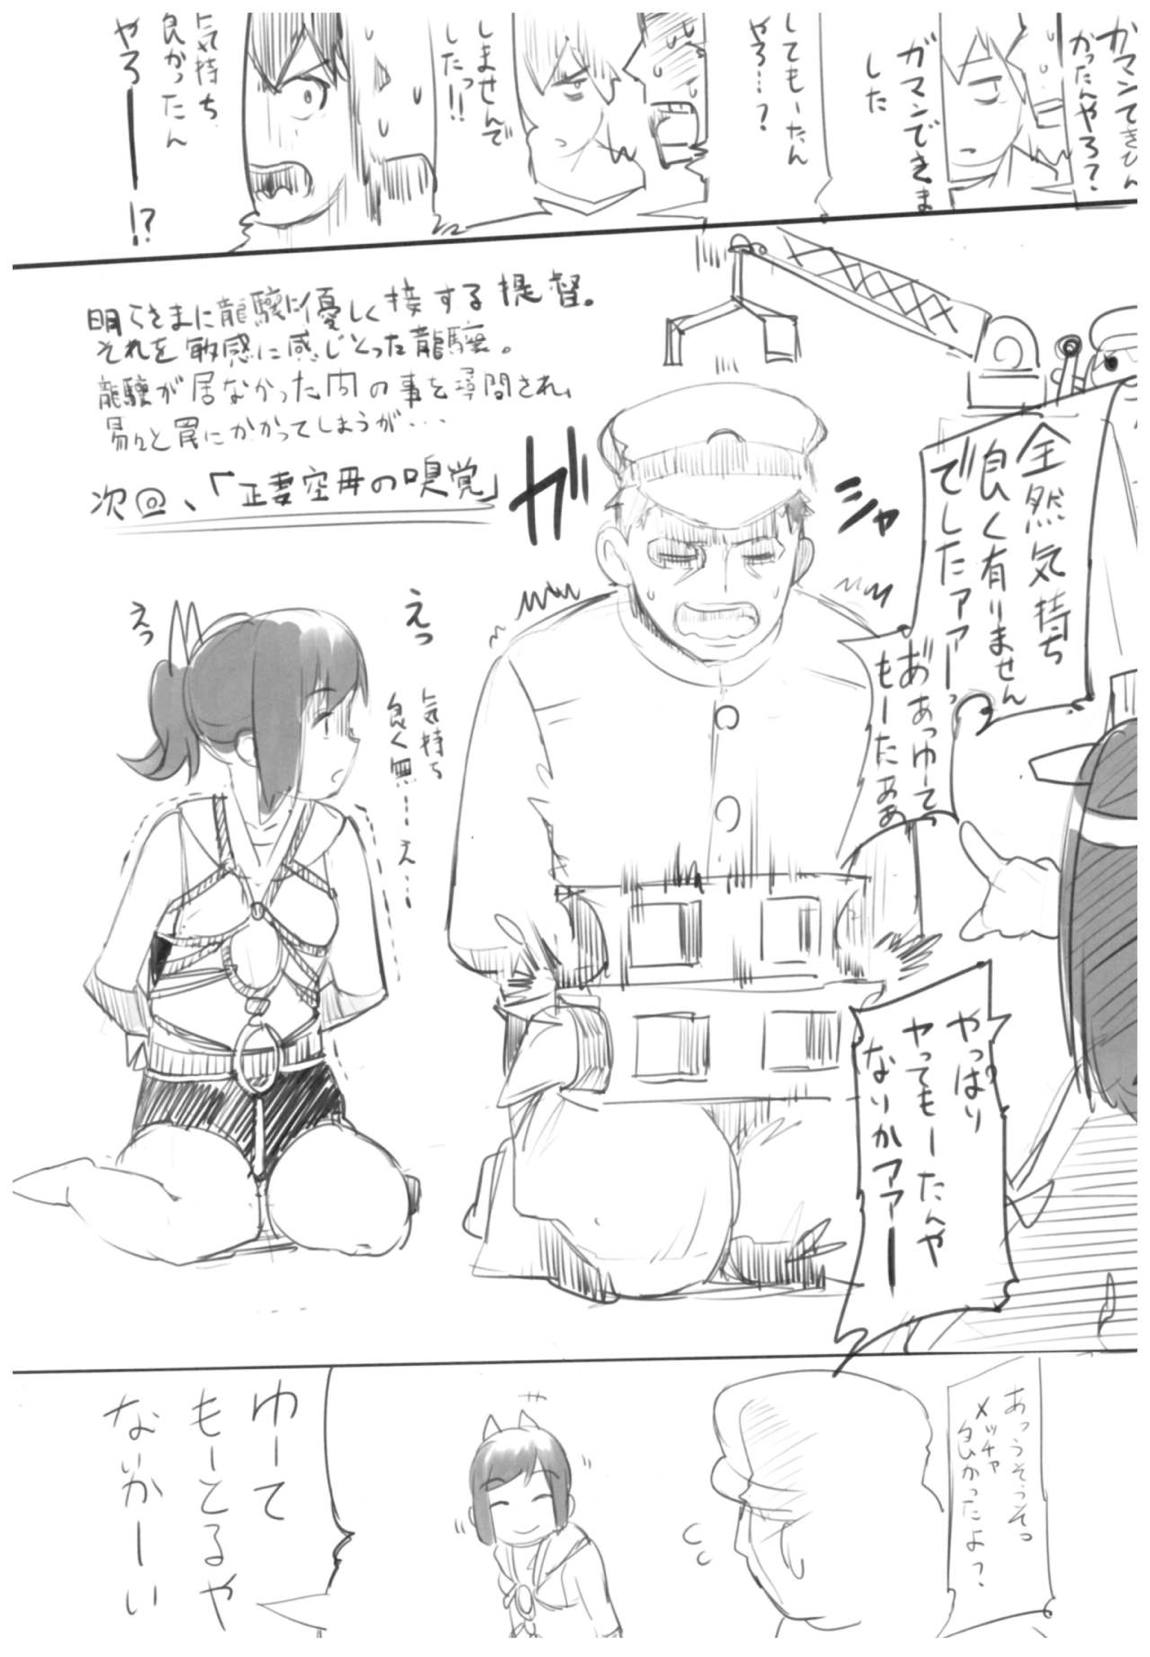 ガマンできひん
かったんやろ?
ガマンできま
した
してもーたん
やろ…?
しませんで
したっ!!
気持ち
良かったん
やろ――!?
明らさまに龍驤に優しく接する提督。
それを敏感に感じとった龍驤。
龍驤が居なかった間の事を尋問され、
易々と罠にかかってしまうが…
次回、「正妻空母の嗅覚」
ガ
シャ
全然気持ち
良く有りません
でしたァァーっ
あ゛あっゆーて
もーたぁぁ
やっぱり
ヤってもーたんや
ないかアァー
えっ
気持ち
良く無…え…
えっ
あっうそうそっ
メッチャ
良かったよ?
ゆーて
もーとるや
ないかーい